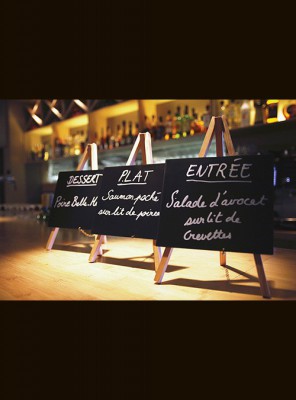 DESSERT
Poire Belle
PLAT
Saumon poché
sur lit de poireau
ENTRÉE
Salade d'avocat
sur lit de
Crevettes